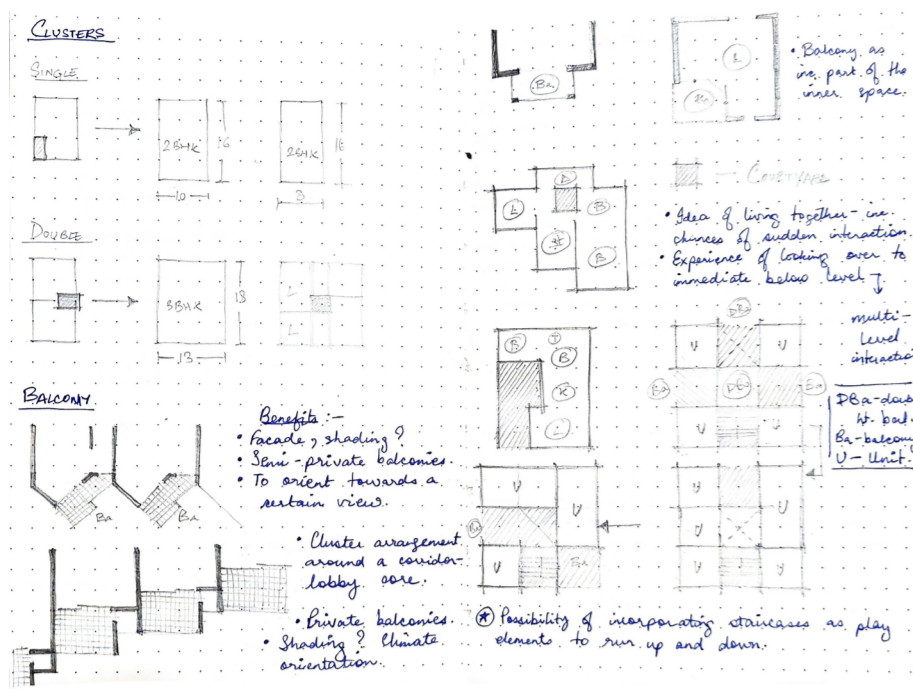 CLUSTERS
SINGLE
2BHK
16
10
2BHK
16
8
DOUBLE
3BHK
18
13
L
L
BALCONY
Ba
Ba
Benefits :-
• Facade, shading?
• Semi-private balconies.
• To orient towards a
certain view.
• Cluster arrangement
around a corridor-
lobby core.
• Private balconies.
• Shading? Climate
orientation.
Ba
L
Ba
• Balcony as
inc. part of the
inner space.
L
B
B
— COURTYARD
• Idea of living together - inc.
chances of sudden interaction.
• Experience of looking over to
immediate below level
multi-
level
interactio
B
T
B
K
L
DBa
U
U
Ba
DBa
Ba
U
U
DBa - doub
ht. bal
Ba - balcony
U - Unit.
U
U
Ba
U
Ba
U
U
U
U
U
U
⊛ Possibility of incorporating staircases as play
elements to run up and down.